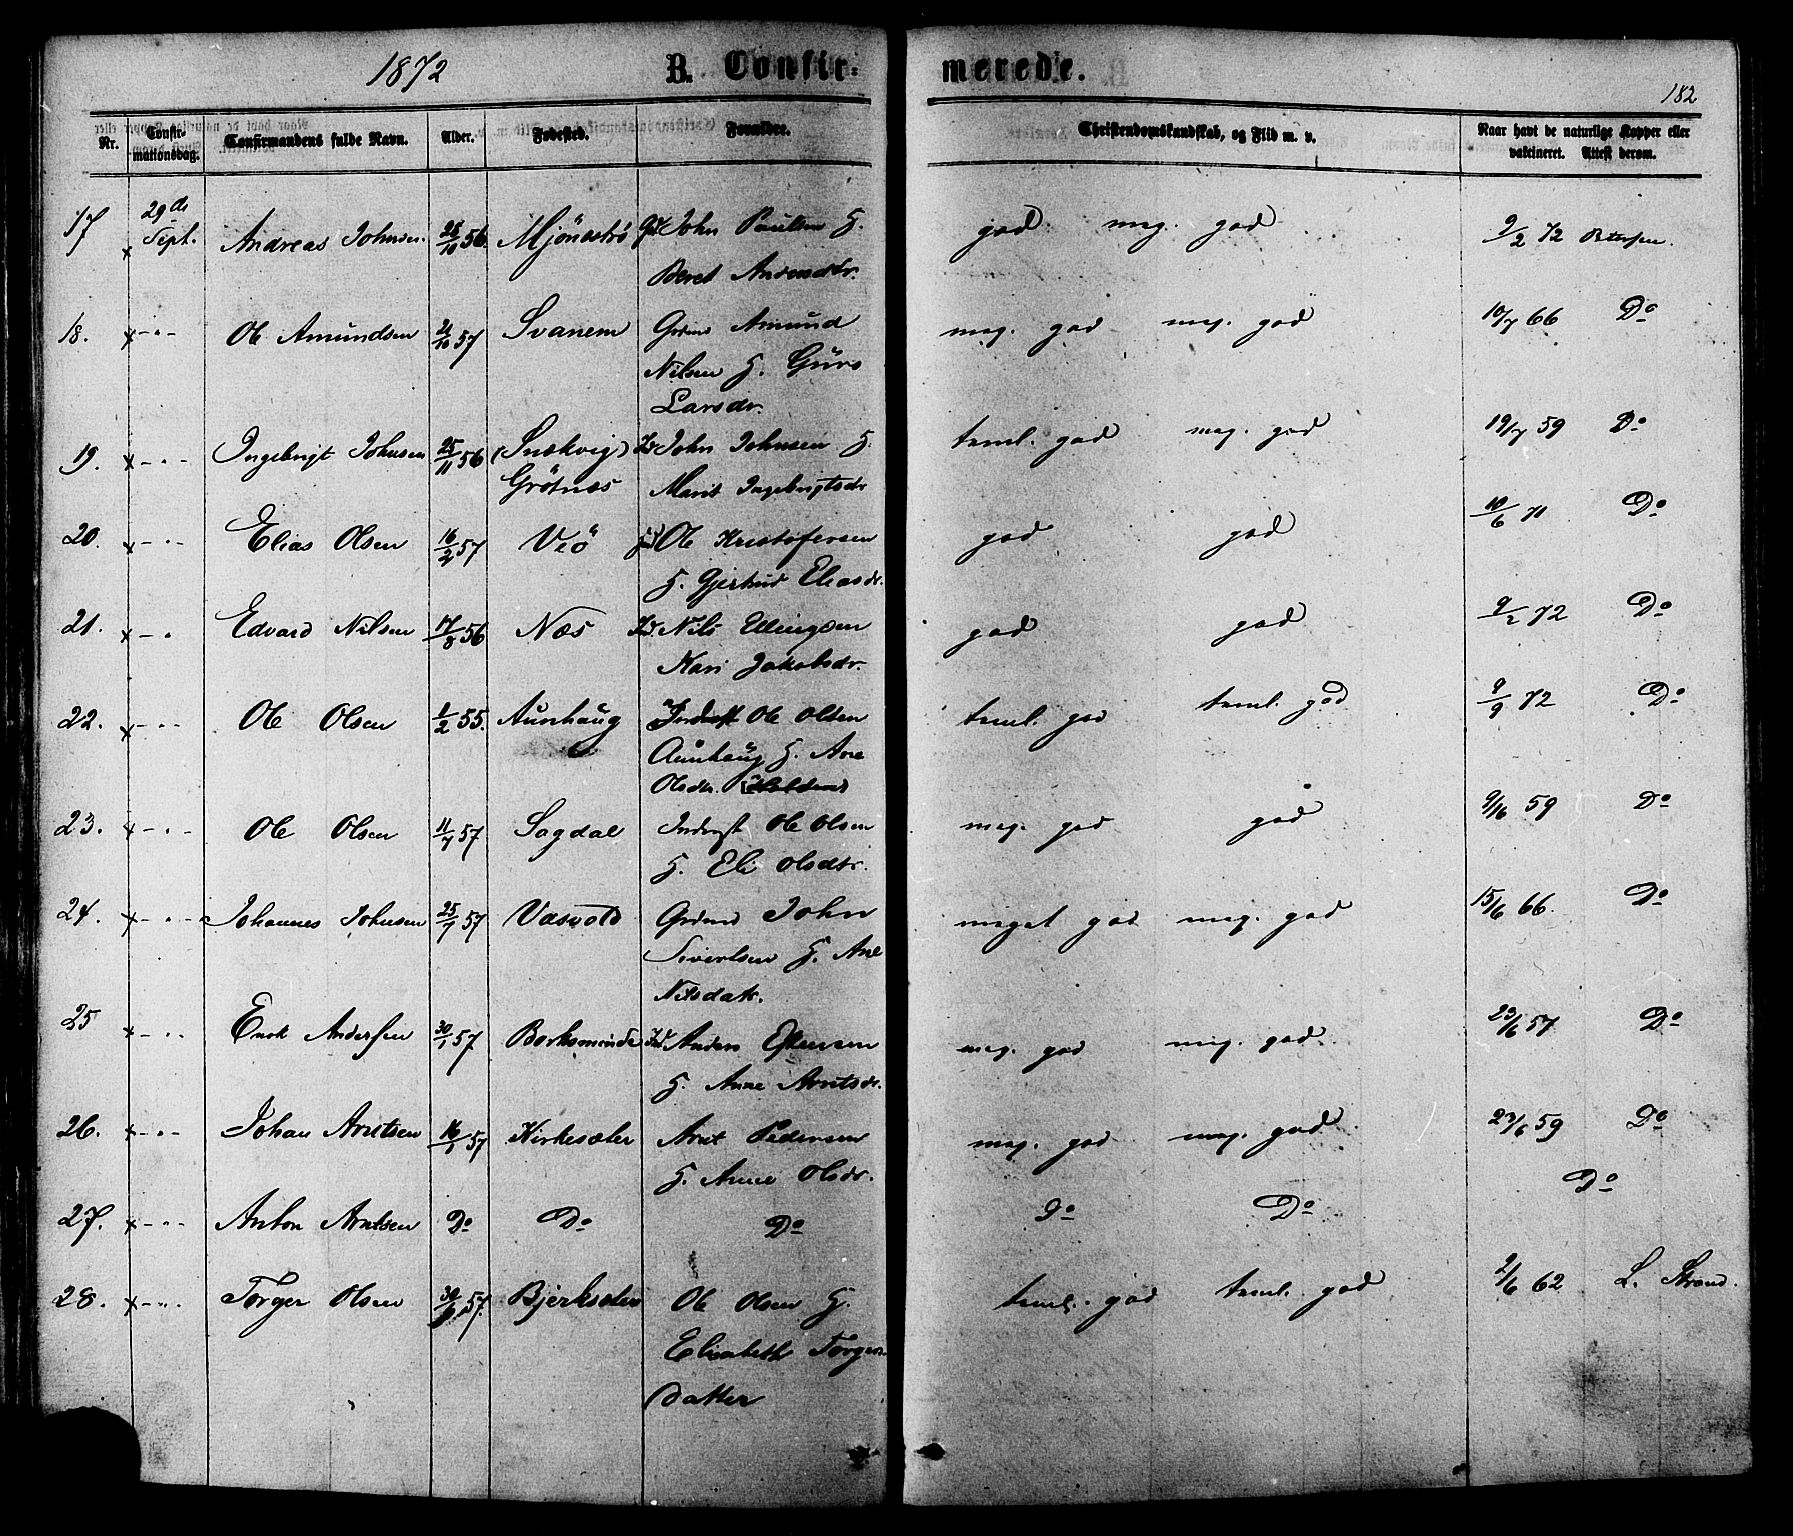 1872 B. Confir= merede. 182
Nr. Confir-mationsdag. Confirmandens fulde Navn. Alder. Fødested. Forældre. Christendomskundskab, og Flid m. v. Naar havt de naturlige Kopper eller vaktineret. Attest derom.
17 29de Sept. Andreas Johnsen 28/10 56 Mjöneströ John Paulsen H. god meg. god 9/2 72 Petersen.
x Beret
18. x - " - Ole Amundsen 21/10 57 Svanem Grdmd Amund meg. god meg. god 10/7 66 Do
Nilsen H. Guro
Larsdr.
19. x - " - Ingebrigt Johnsen 25/11 56 (Snekvig) Id John Johnsen H. teml. god meg. god 19/7 59 Do
Grötnæs Marit Ingebrigtsdr
20. x - " - Elias Olsen 16/2 57 Veö Ole Kristofersen god god 10/6 71 Do
H. Gjertrud Eliasdr.
21. x - " Edvard Nilsen 17/8 56 Næs Id. Nils Ellingsen god god 9/2 72 Do
Kari Jakobsdr.
22. x - " - Ole Olsen 1/2 55. Aunhaug Inderst Ole Olsen teml. god teml. god 9/9 72 Do
Aunhaug H. Ane
Olsdr.
23. x - " - Ole Olsen 11/7 57 Sagdal Inderst Ole Olsen meg. god god 9/6 59 Do
H. Eli Olsdtr.
24. x - " - Johannes Johnsen 25/7 57 Vasvold Grdmd John meget god meg. god 15/6 66. Do
Sivertsen H. Ane
Nilsdatr.
25 x - " - Enok Andersen 30/1 57 Borksminde Id Anders meg. god meg. god 23/6 57 Do
H. Anne Arntsdr.
26. x - " - Johan Arntsen 16/1 57 Kirkesæter Arnt Pedersen meg. god meg. god 23/6 59 Do
H. Anne Olsdr.
27. x - " - Anton Arntsen Do Do Do Do Do Do
28. x - " - Torger Olsen 30/9 57. Bjerksæter Ole Olsen H. teml. god teml. god 2/6 62 L. Strand.
Elisabeth Torgers
datter